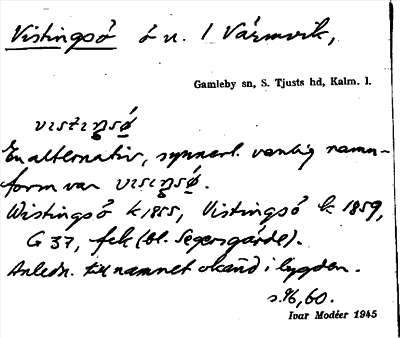 Vistingsö ö n. l Värmvik,
Gamleby sn, S. Tjusts hd, Kalm. l.
En alternativ, synnerl. vanlig namn-
form var
Wistingsö k 1855, Vistingsö k 1859,
G 37, fek (bl. Segersgärde).
Anledn. till namnet okänd i bygden.
s. 16, 60.
Ivar Modéer 1945